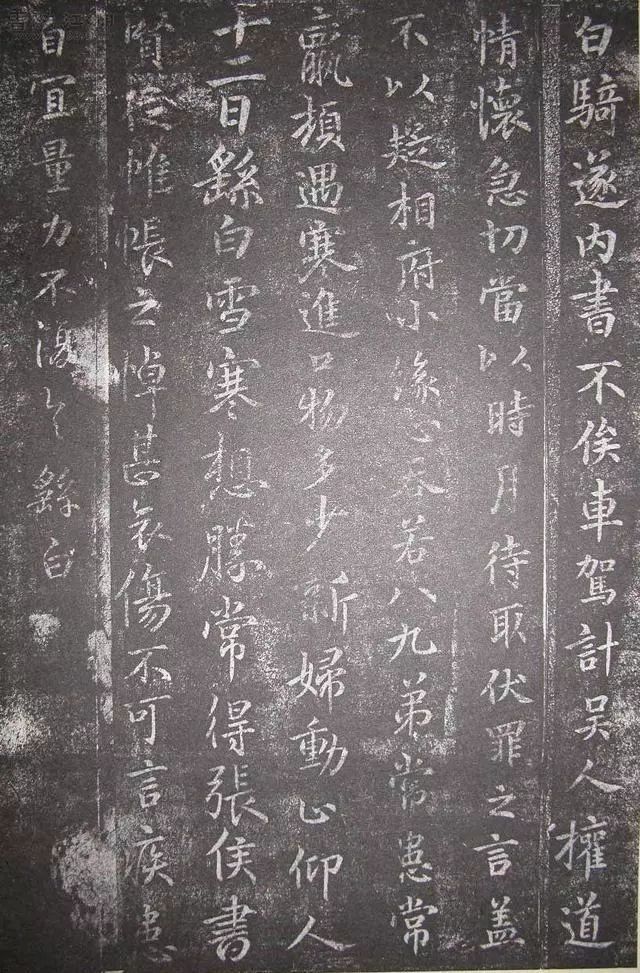 白騎遂内書不俟車駕計吳人權道
情懷急切當以時月待取伏罪之言盖
不以疑相府小緣公吞若八九弟常患常
羸頓遇寒進口物多少新婦動止仰人
十二日繇白雪寒想勝常得張侯書
賢從帷帳之悼甚哀傷不可言疾患
自宜量力不復具繇白